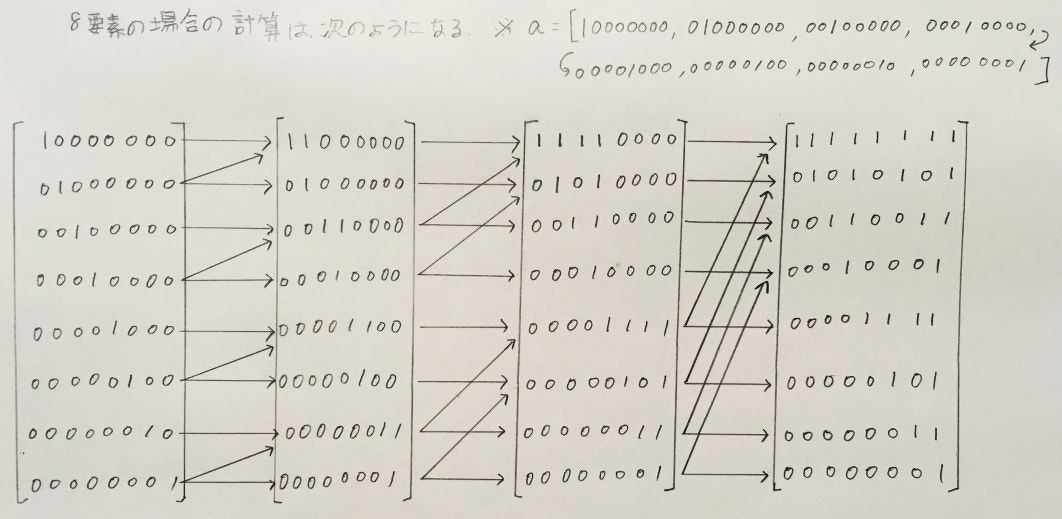 8要素の場合の計算は、次のようになる。 ※ a = [10000000, 01000000, 00100000, 00010000,
00001000, 00000100, 00000010, 00000001]
10000000 11000000 11110000 11111111
01000000 01000000 01010000 01010101
00100000 00110000 00110000 00110011
00010000 00010000 00010000 00010001
00001000 00001100 00001111 00001111
00000100 00000100 00000101 00000101
00000010 00000011 00000011 00000011
00000001 00000001 00000001 00000001